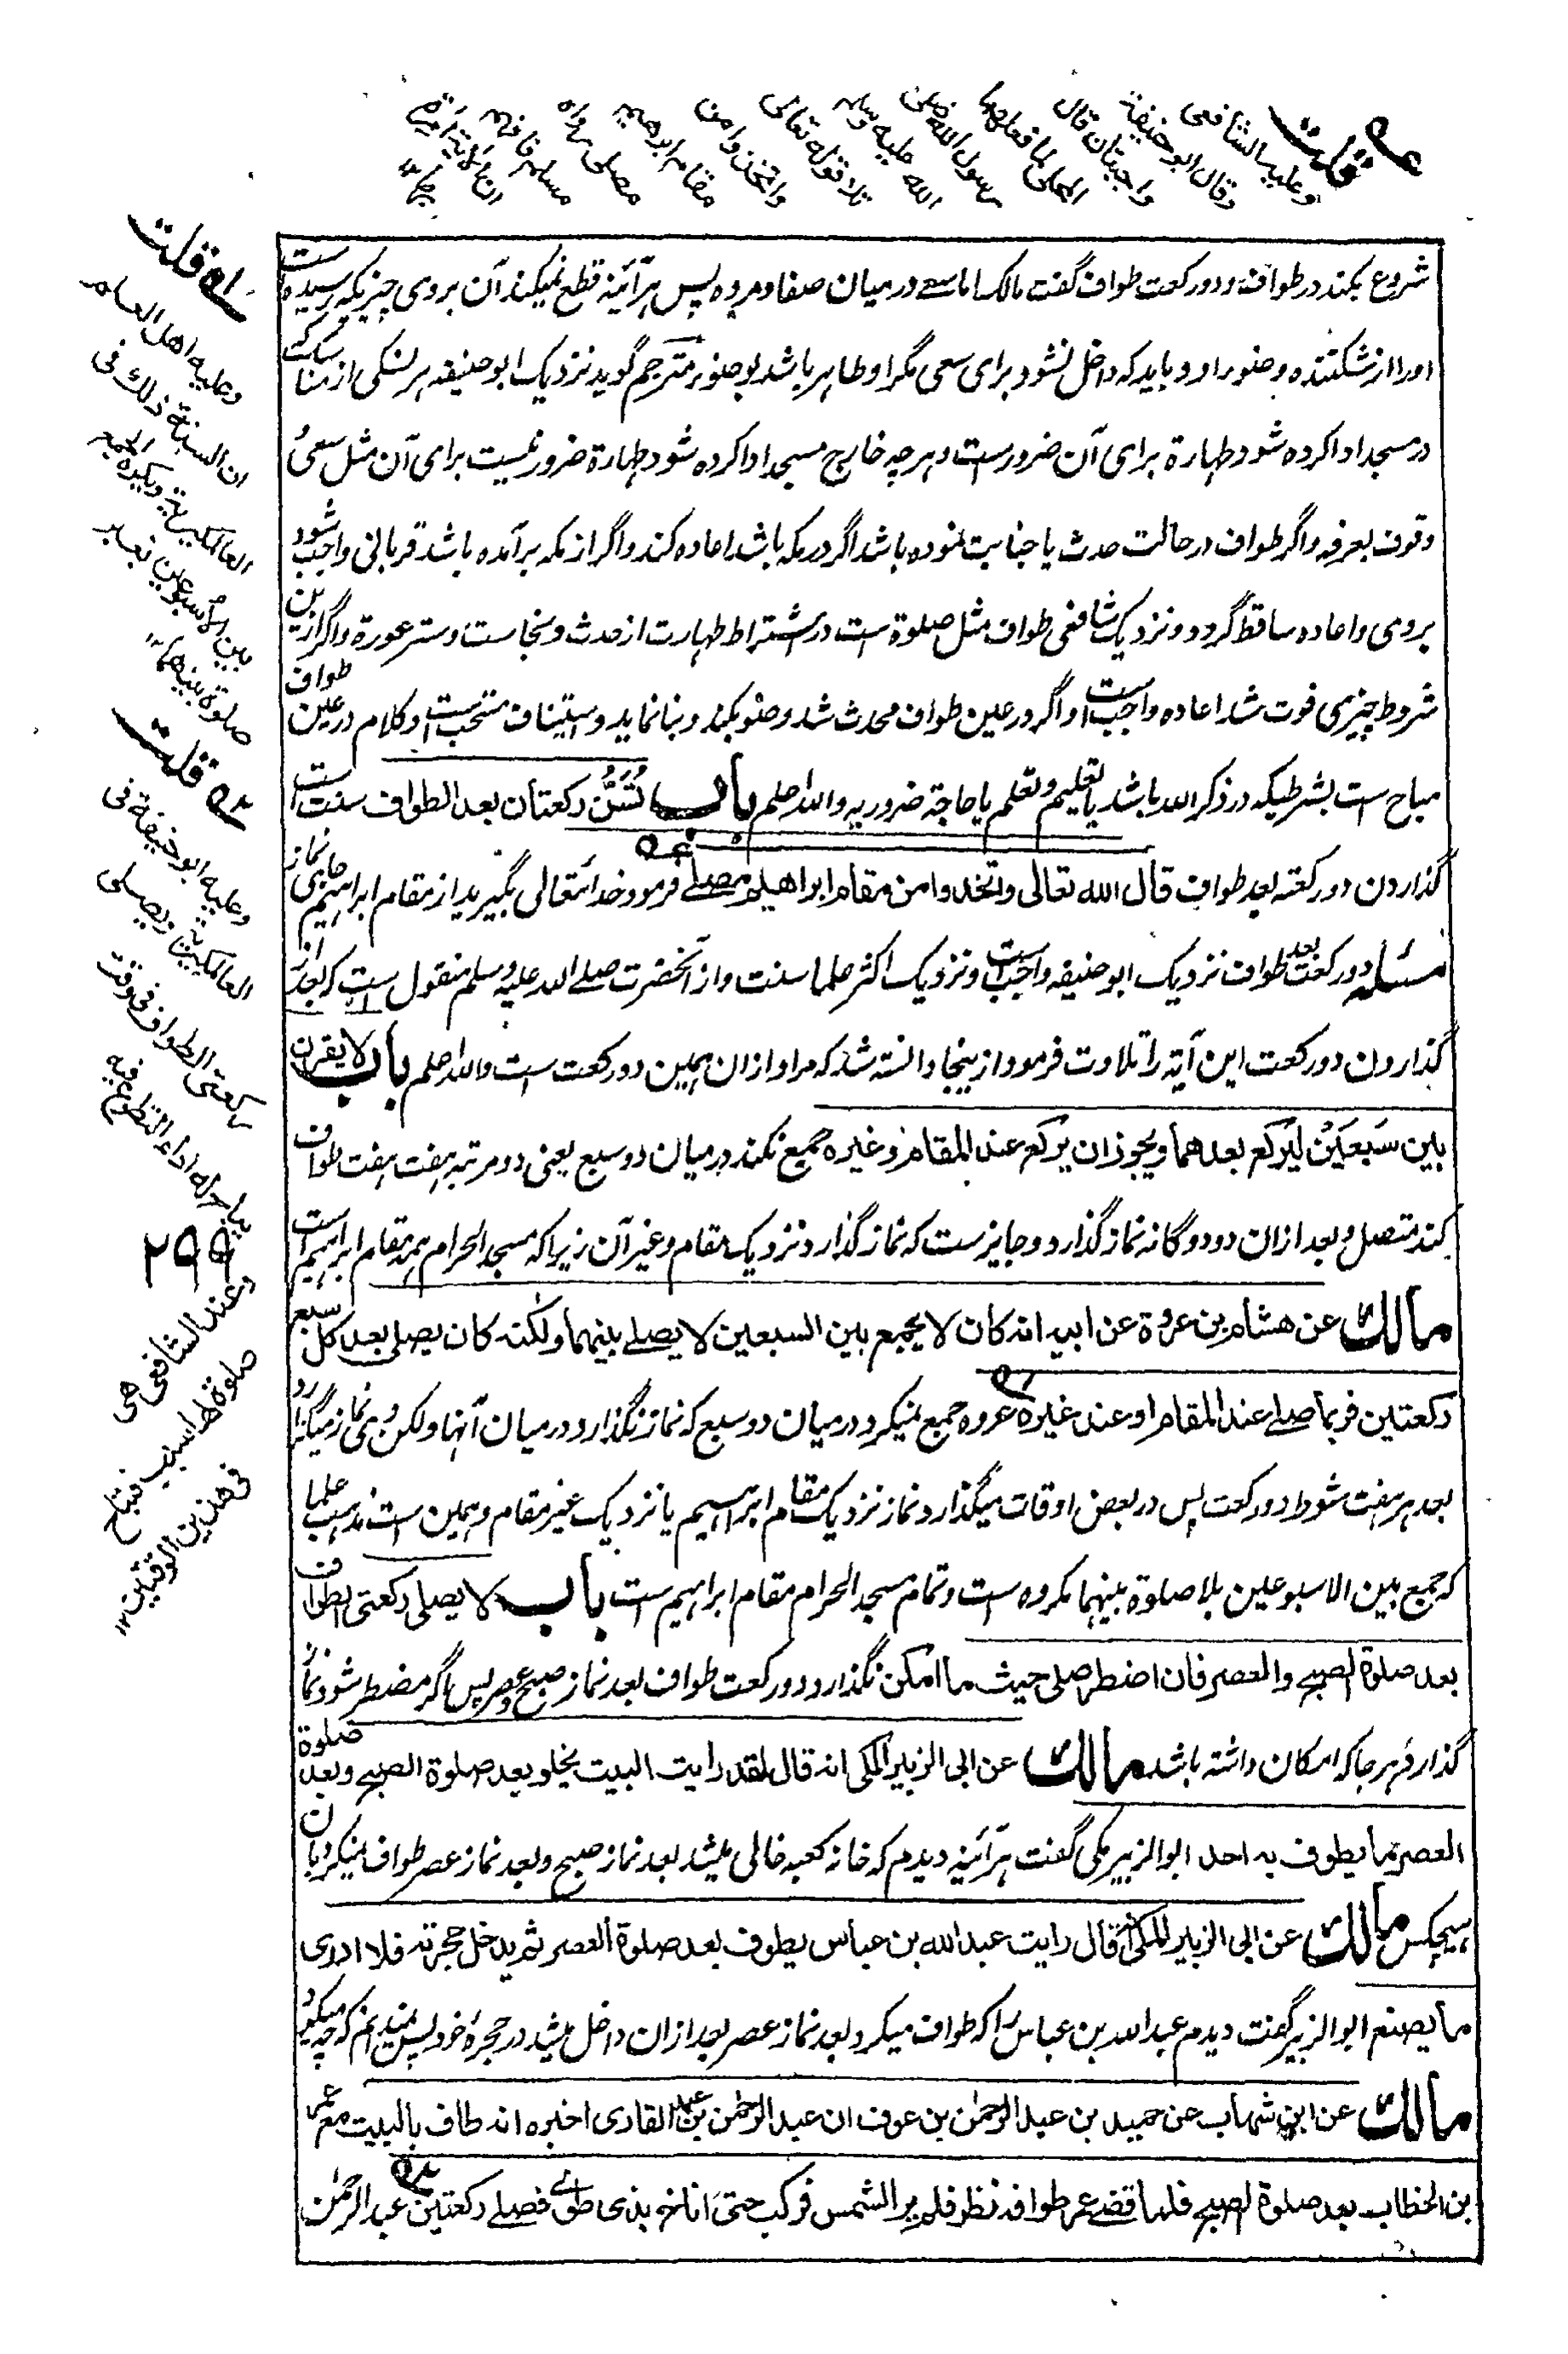 قلت
وعليه الشافعي
وقال ابو حنيفة
واجبتان قال
المحلى لما فعلهما
رسول الله صلى
الله عليه وسلم
تلا قوله تعالى
واتخذوا من
مقام ابراهيم
مصلى رواه
مسلم فافهم
شروع بکند در طواف و دو رکعت طواف گفت مالک اما سعی در میان صفا و مروه پس هرآئینه قطع نمیکند آن بر وی چیزیکه رسیده است
او را از شکننده وضو را و باید که داخل نشود برای سعی مگر او طاهر باشد بوضو مترجم گوید نزدیک ابو حنیفه هر نسکی از مناسک که
در مسجد ادا کرده شود طهارة برای آن ضرورست و هر چه خارج مسجد ادا کرده شود طهارة ضرور نیست برای آن مثل سعی و
وقوف بعرفه و اگر طواف در حالت حدث یا جنابت نموده باشد اگر در مکه باشد اعاده کند و اگر از مکه برآمده باشد قربانی واجب شود
بر وی و اعاده ساقط گردد و نزدیک شافعی طواف مثل صلوة است در اشتراط طهارت از حدث و نجاست و ستر عورة و اگر ازین
شروط چیزی فوت شد اعاده واجب است و اگر در عین طواف محدث شد وضو بکند و بنا نماید و استیناف مستحب است و کلام در عین طواف
مباح است بشرطیکه در ذکر الله باشد یا تعلیم و تعلم یا حاجة ضروریه والله اعلم باب تُسَنُّ ركعتان بعد الطواف سنت است
گذاردن دو رکعة بعد طواف قال الله تعالى واتخذوا من مقام ابراهيم مصلى فرمود خدا تعالی بگیرید از مقام ابراهیم جای نماز
مسئله دو رکعت بعد طواف نزدیک ابو حنیفه واجب است و نزدیک اکثر علما سنت و از آنحضرت صلے الله علیه وسلم منقول است که بعد از
گذاردن دو رکعت این آیه را تلاوت فرمود از ینجا دانسته شد که مراد ازان همین دو رکعت است والله اعلم باب لا يقرن
بين سَبعَين ليركع بعدهما ويجوز ان يركع عند المقام وغيره جمع نکند در میان دو سبع یعنی دو مرتبه هفت هفت طواف
کند متصل و بعد ازان دو دوگانه نماز گذارد و جایز ست که نماز گذارد نزدیک مقام و غیر آن زیرا که مسجد الحرام همه مقام ابراهیم است
مالك عن هشام بن عروة عن ابيه انه كان لا يجمع بين السبعين لا يصلے بينهما ولكنه كان يصلى بعد كل سبع
ركعتين فربما صلے عند المقام او عند غيره عروه جمع نمیکرد در میان دو سبع که نماز نگذارد در میان آنها و لکن وی نماز میگذارد
بعد هر هفت شوط دو رکعت پس در بعض اوقات میگذارد نماز نزدیک مقام ابراهیم یا نزدیک غیر مقام و همین است مذهب علما
که جمع بین الاسبوعین بلا صلوة بینهما مکروه است و تمام مسجد الحرام مقام ابراهیم ست باب لا يصلى ركعتى الطواف
بعد صلوة الصبح والعصر فان اضطر صلى حيث ما امكن نگذارد دو رکعت طواف بعد نماز صبح و عصر پس اگر مضطر شود نماز
گذارد هر جا که امکان داشته باشد مالك عن ابى الزبير المكى انه قال لقد رايت البيت يخلو بعد صلوة الصبح وبعد صلوة
العصر ما يطوف به احد ابو الزبیر مکی گفت هرآئینه دیدم که خانه کعبه خالی میشد بعد نماز صبح و بعد نماز عصر طواف نمیکرد بان
هیچکس مالك عن ابى الزبير المكى انه قال رايت عبد الله بن عباس يطوف بعد صلوة العصر ثم يدخل حجرته فلا ادرى
ما يصنع ابو الزبیر گفت دیدم عبد الله بن عباس را که طواف میکرد بعد نماز عصر بعد ازان داخل میشد در حجرۀ خود پس نمیدانم که چه میکرد
مالك عن ابن شهاب عن حميد بن عبد الرحمن بن عوف ان عبد الرحمن بن عبد القارى اخبره انه طاف بالبيت مع عمر
بن الخطاب بعد صلوة الصبح فلما قضے عمر طوافه نظر فلم ير الشمس فركب حتى اناخ بذى طوى فصلے ركعتين عبد الرحمن
قلت
وعليه اهل العلم
ان السنة ذلك فى
العالمگيرية ويكره الجمع
بين الاسبوعين بغير
صلوة بينهما
قلت
وعليه ابو حنيفة فى
العالمگيرية ويصلى
ركعتى الطواف فى وقت
يباح له اداء التطوع فيه
۲۹۹
وعند الشافعى هى
صلوة لها سبب فتباح
فى هذين الوقتين ۱۲